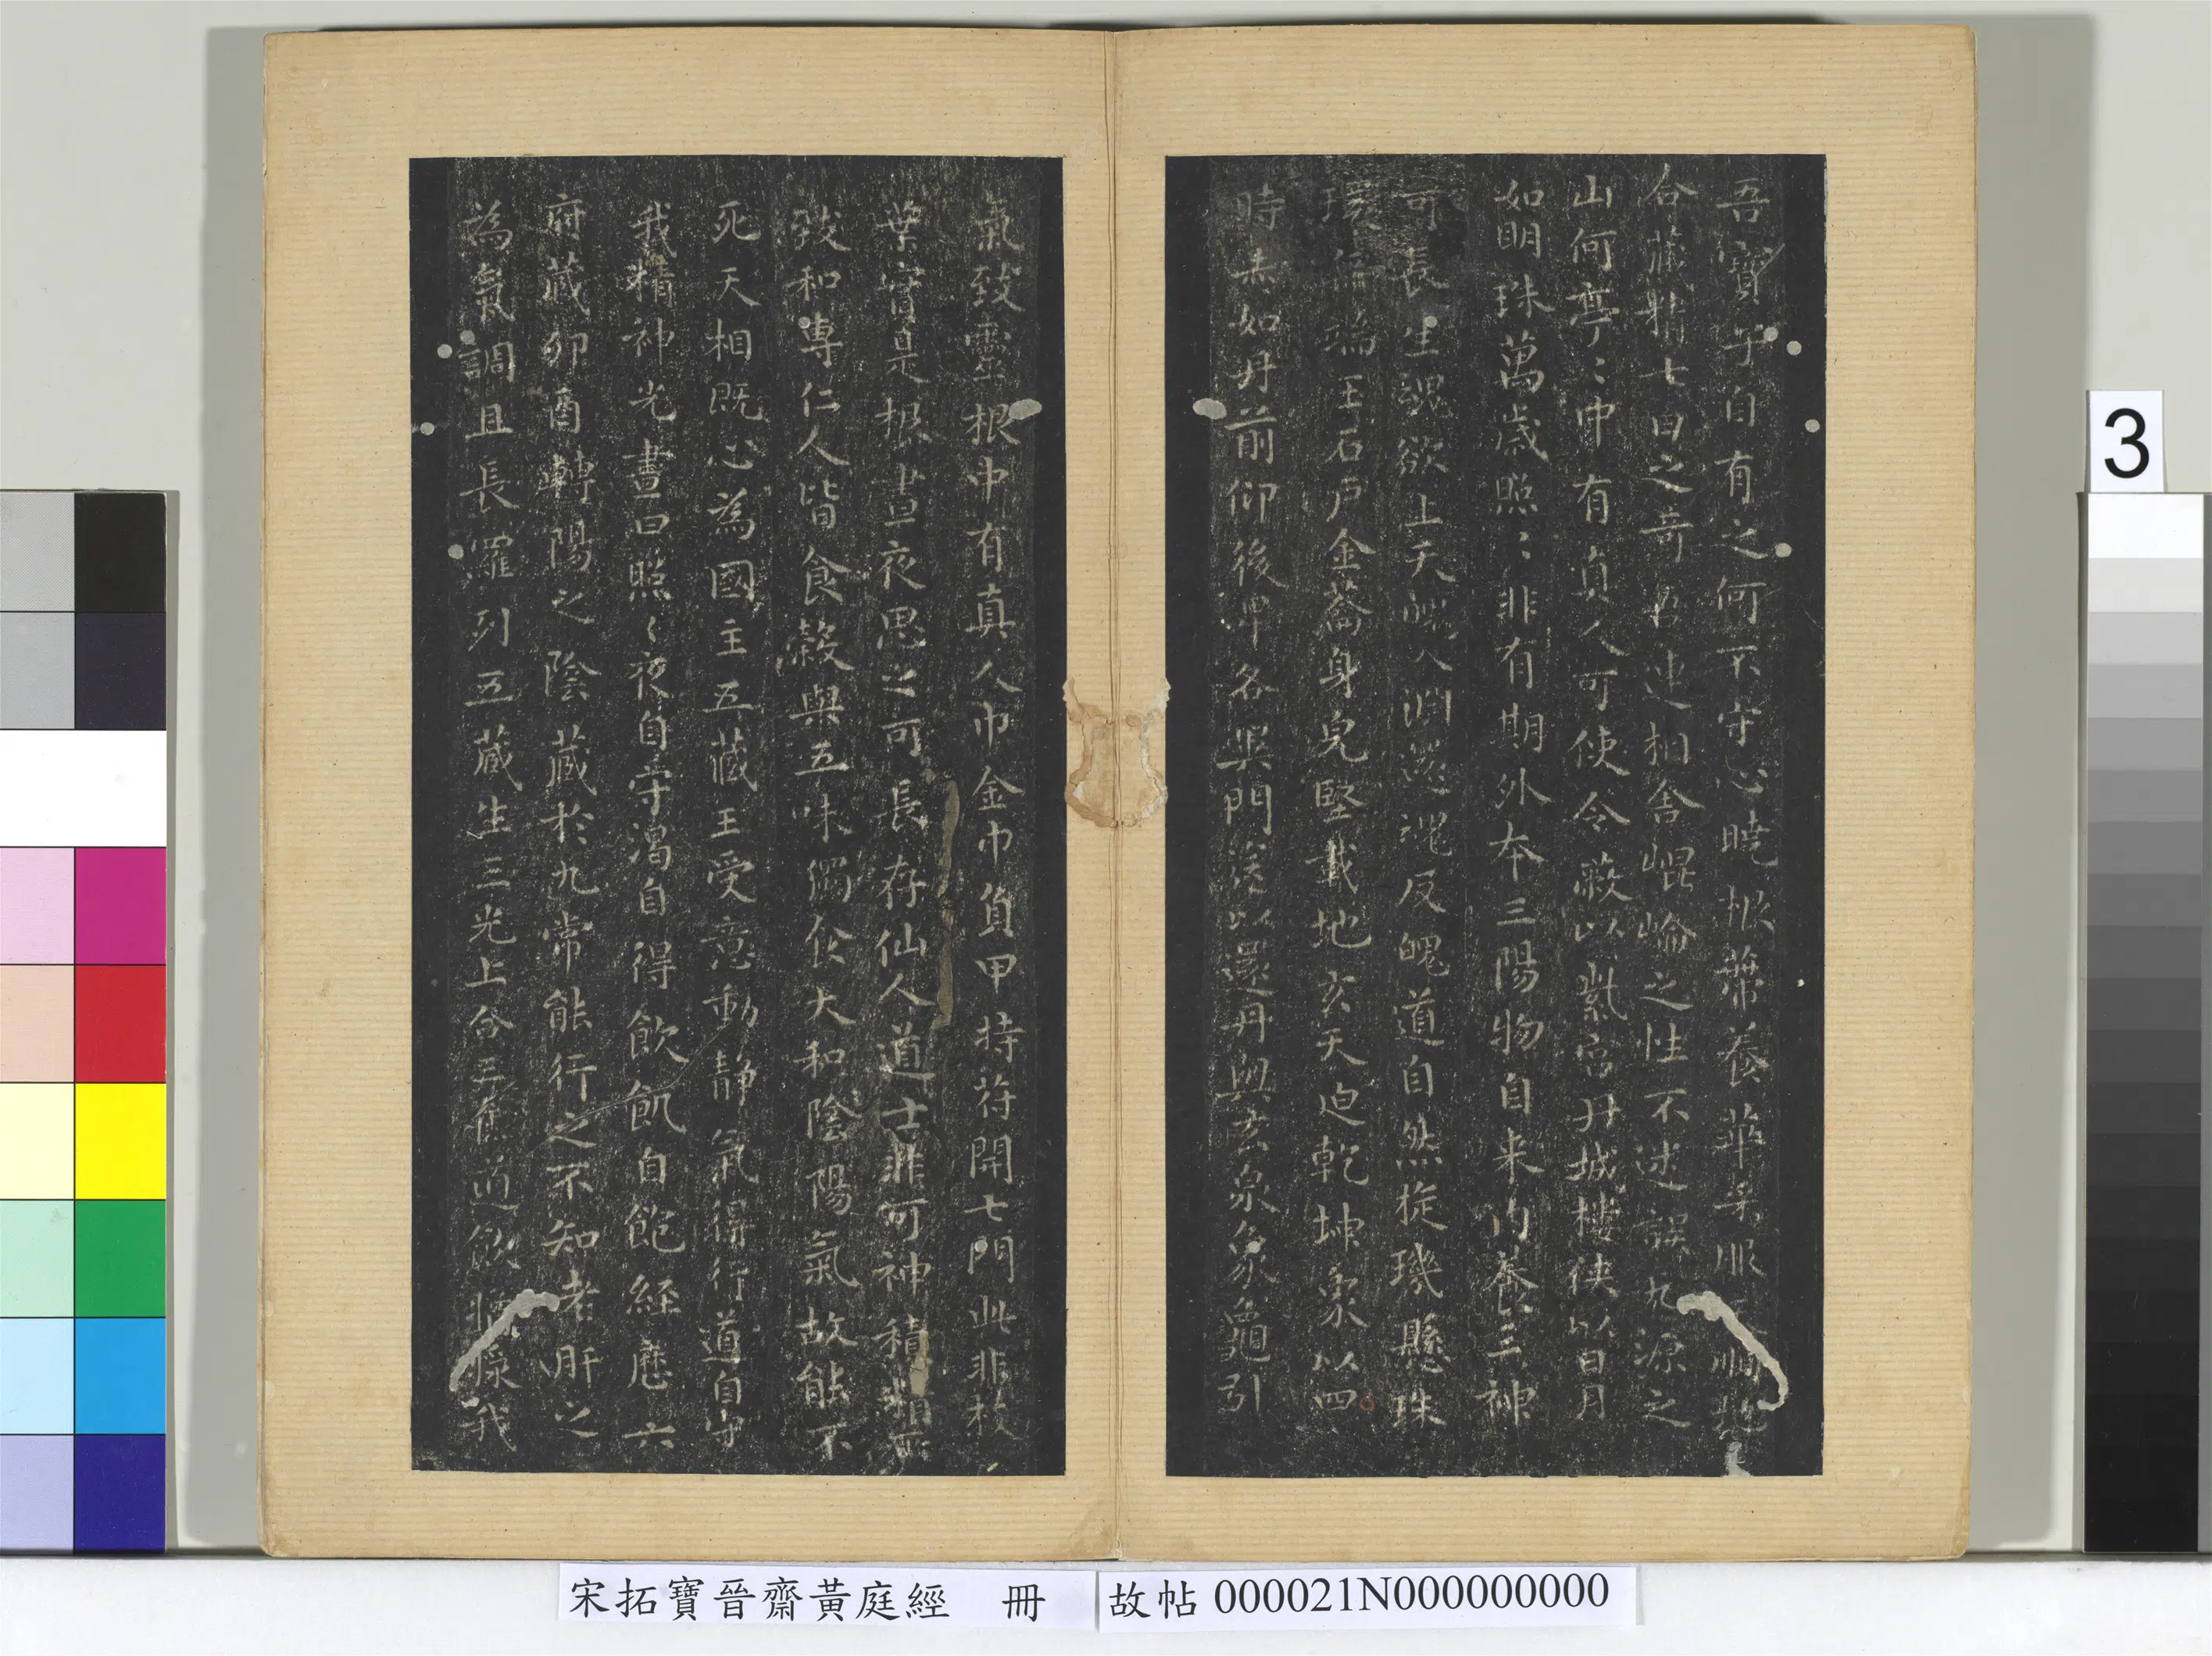 吾寶子自有之何不守心曉根蔕養華采服天順地
合藏精七日之奇吾连相舍崐崘之性不迷誤九源之
山何亭〻中有真人可使令蔽以紫宫丹城樓俠以日月
如明珠萬歲照〻非有期外本三陽物自来内養三神
可長生魂欲上天魄入淵還魂反魄道自然旋璣懸珠
環無端玉石戶金籥身皃堅載地玄天迫乾坤象以四
時赤如丹前仰後卑各異門送以還丹與玄泉象龜引
氣致靈根中有真人巾金巾負甲持苻開七門此非枝
葉實是根晝夜思之可長存仙人道士非可神積精所
致和專仁人皆食榖與五味獨食大和陰陽氣故能不
死天相既心為國主五藏王受意動静氣得行道自守
我精神光晝日照〻夜自守渴自得飲飢自飽經歷六
府藏卯酉轉陽之陰藏於九常能行之不知老肝之
為氣調且長羅列五藏生三光上合三焦道飲漿我
3
宋拓寶晉齋黃庭經 冊
故帖 000021N000000000